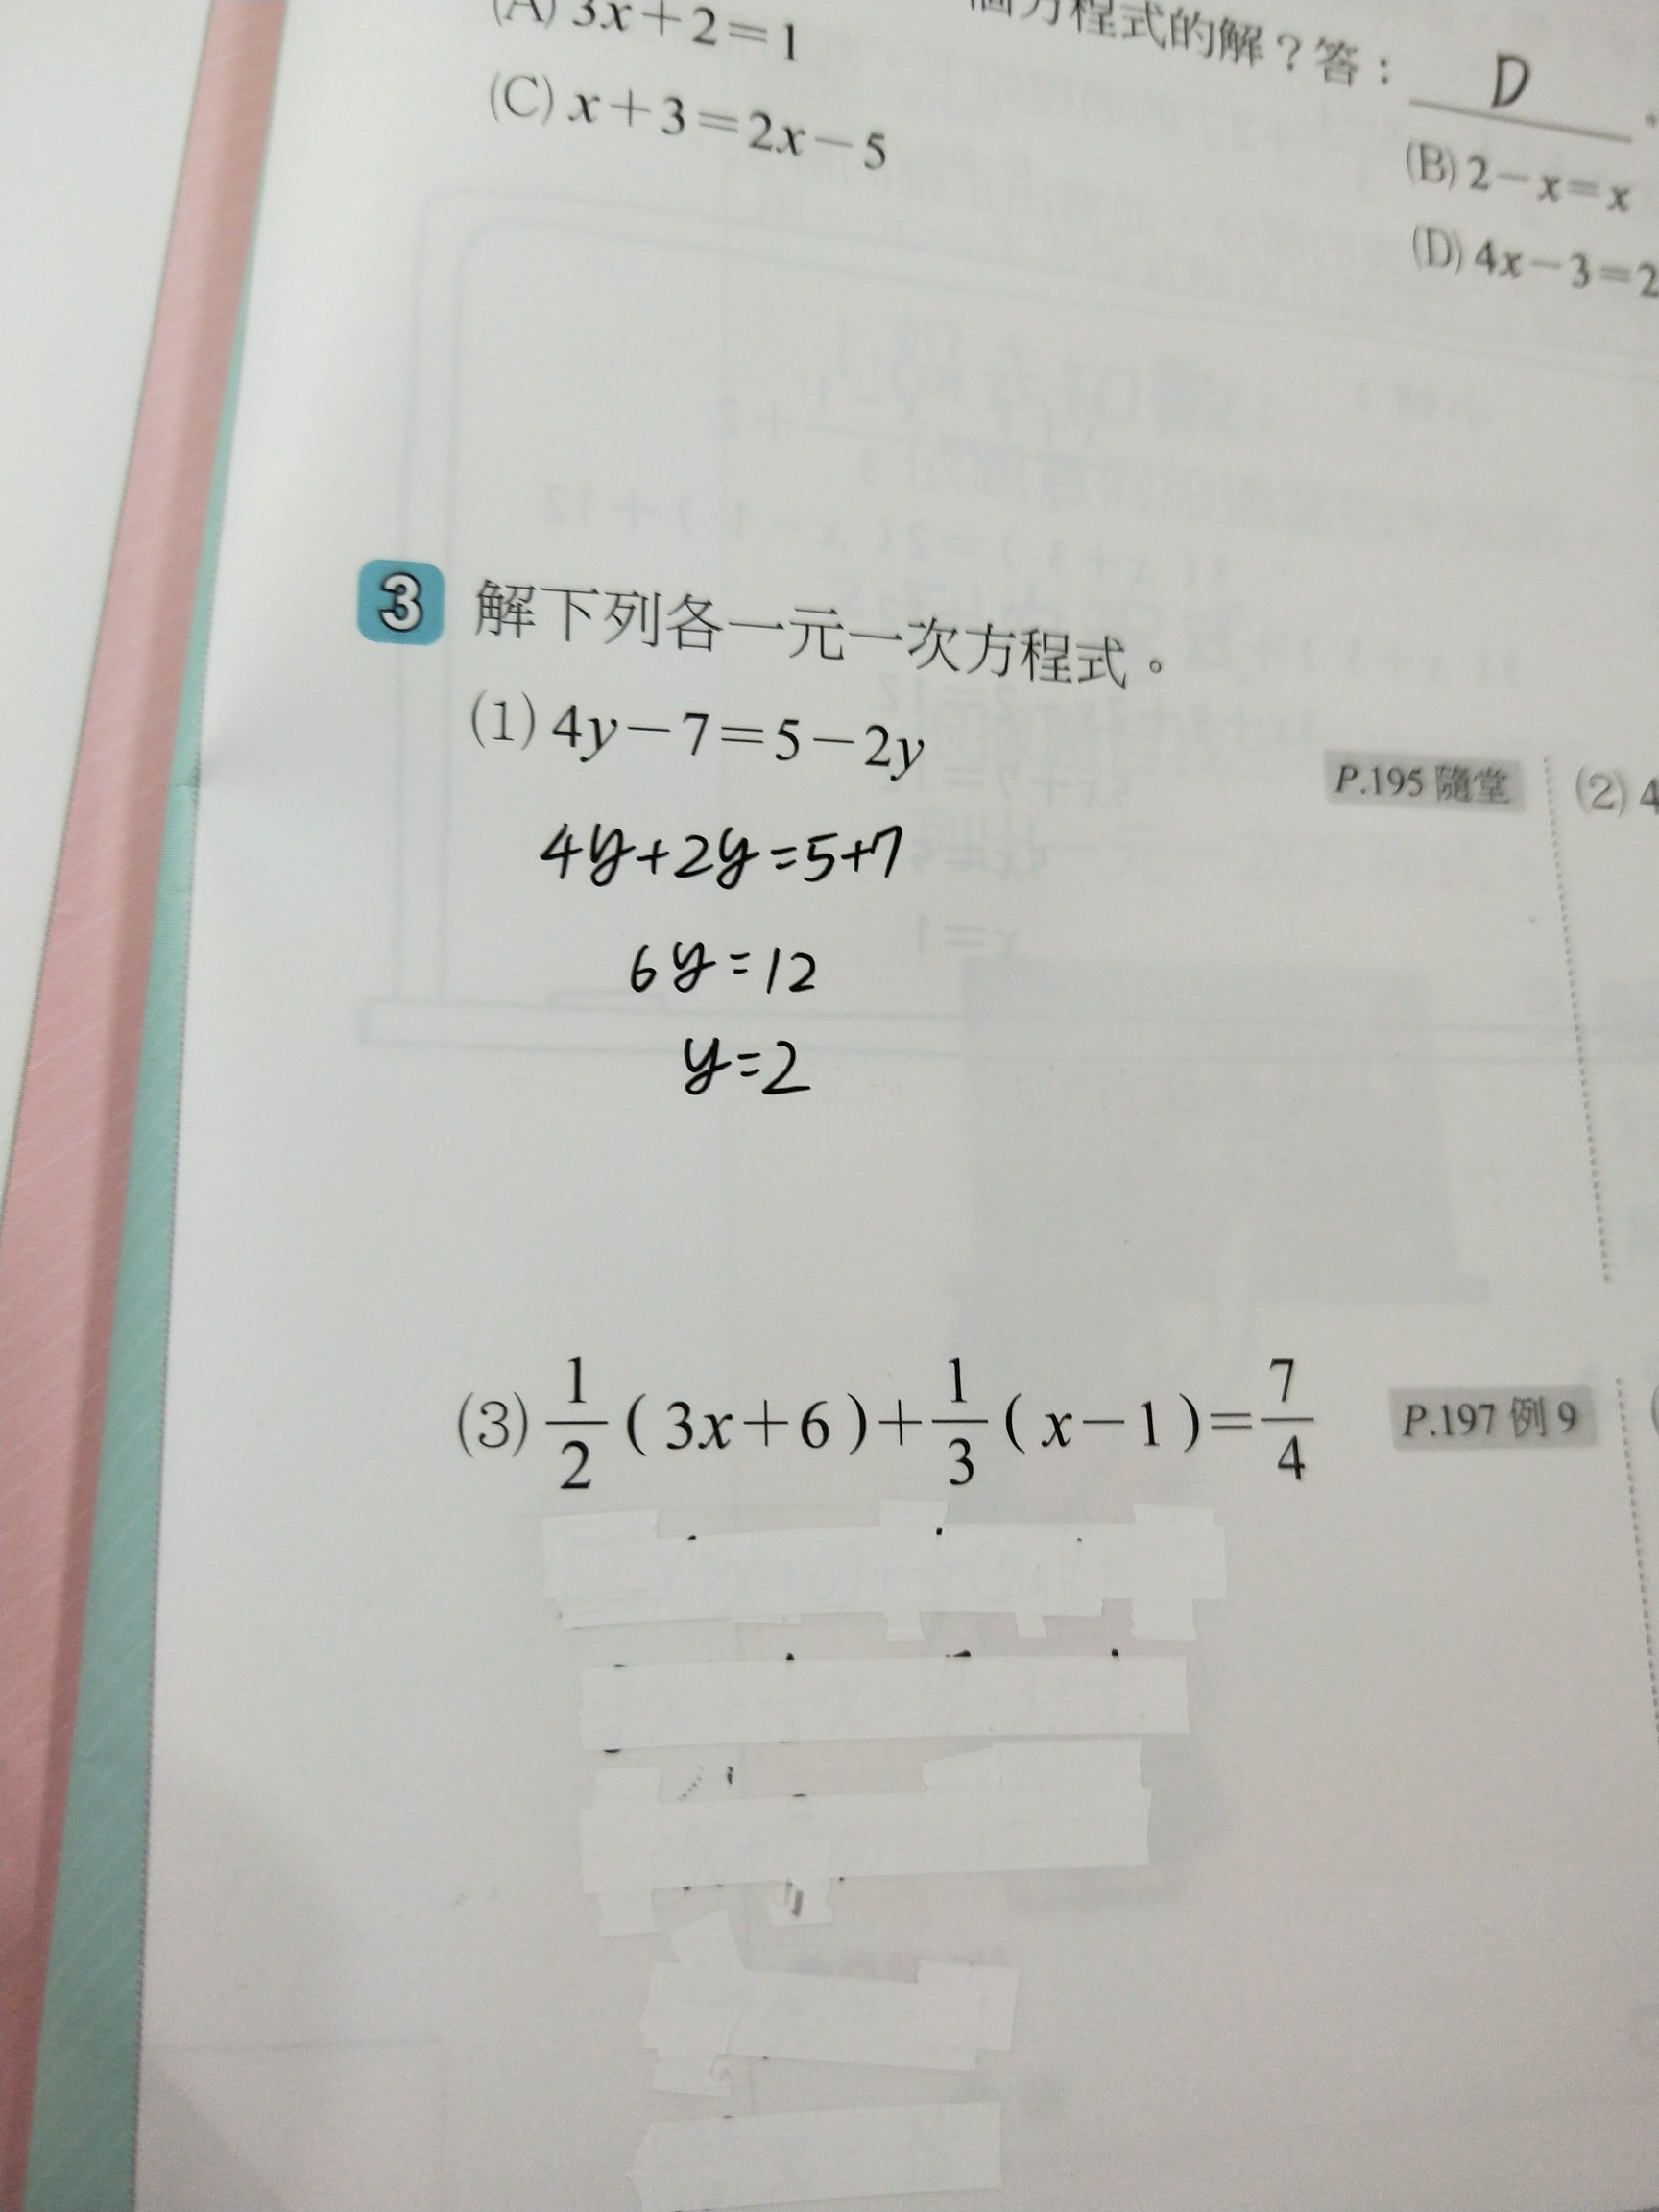 (A) 3x+2=1
個方程式的解？答： D 。
(B) 2－x=x
(C) x+3=2x－5
(D) 4x－3=2
3 解下列各一元一次方程式。
(1) 4y－7=5－2y
P.195 隨堂
(2) 4
4y+2y=5+7
6y=12
y=2
(3) 1/2 ( 3x+6 )+ 1/3 ( x－1 )= 7/4
P.197 例 9